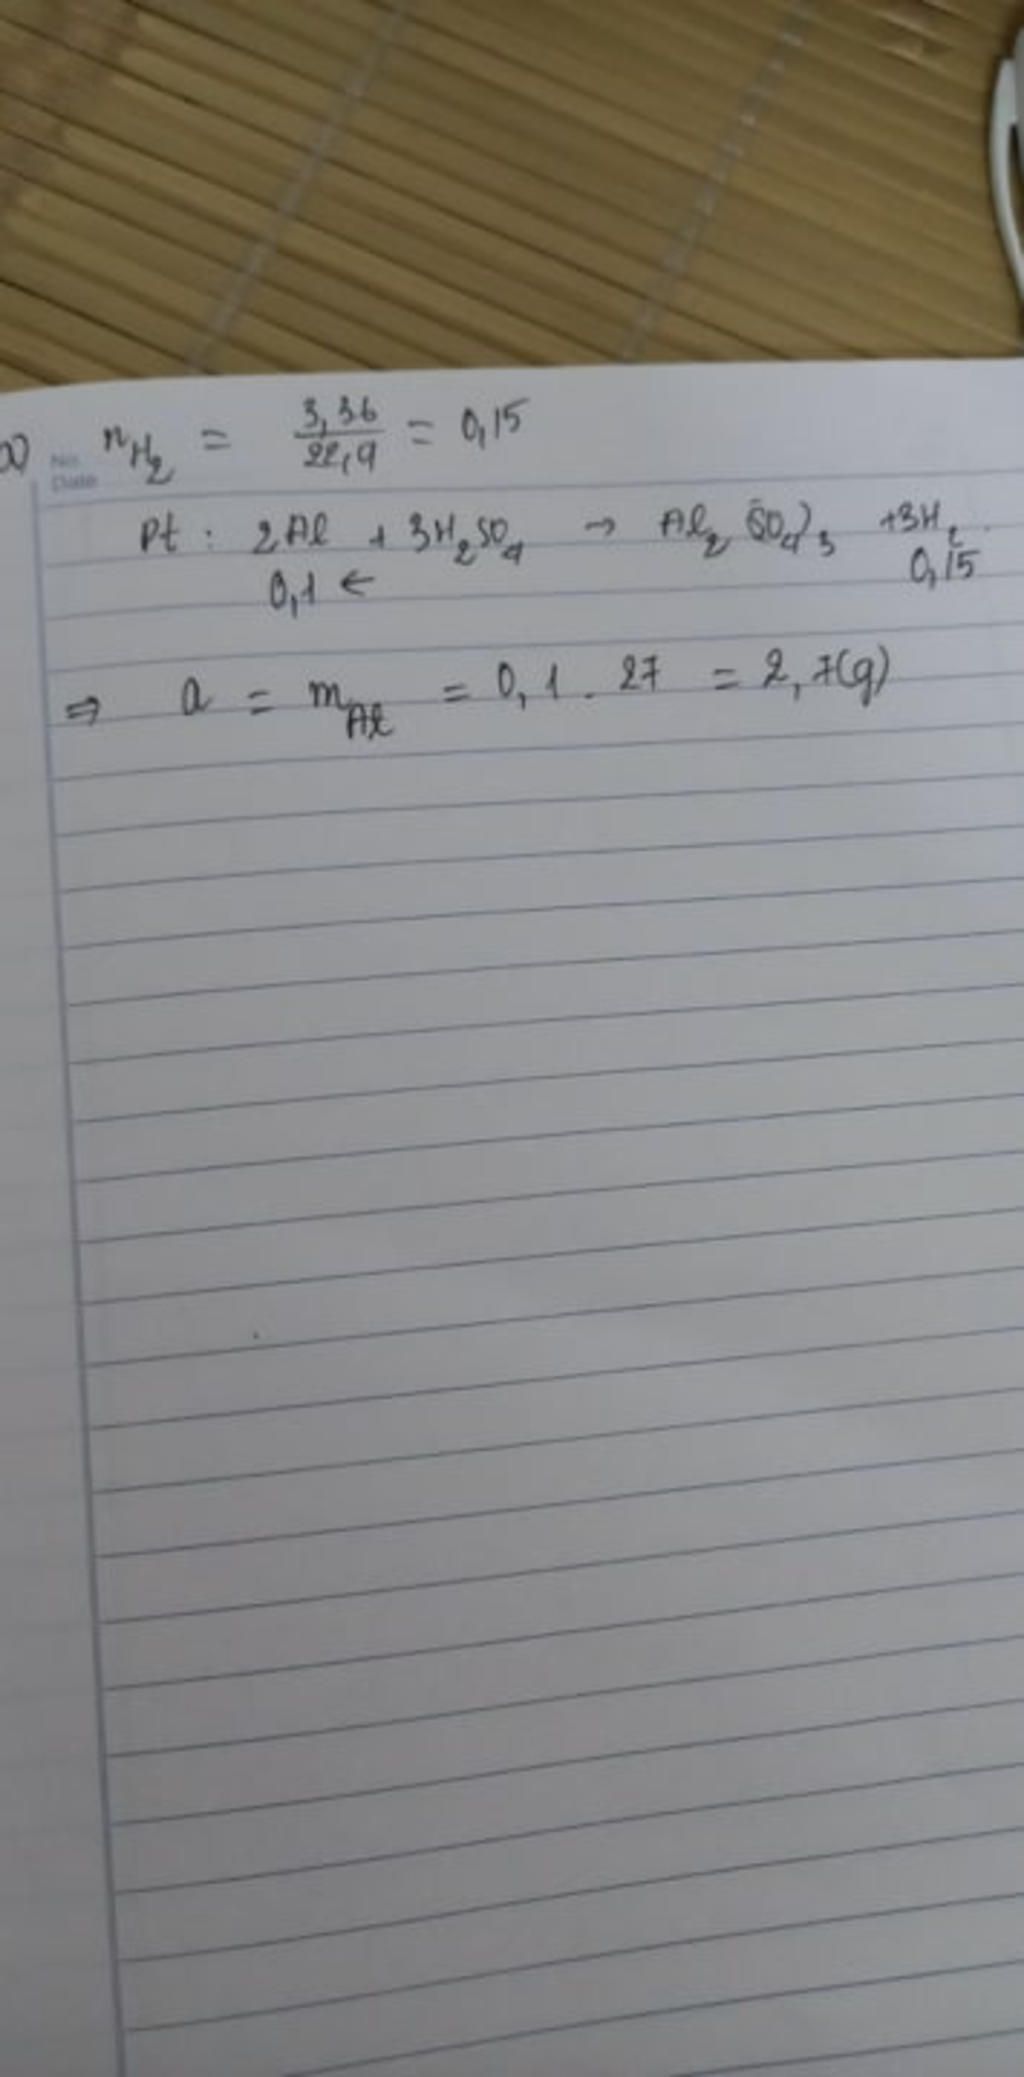 a) n_{H_2} = \frac{3,36}{22,4} = 0,15
No.
Date
Pt : 2Al + 3H_2SO_4 → Al_2(SO_4)_3 + 3H_2.
0,1 ← 0,15
⇒ a = m_{Al} = 0,1 . 27 = 2,7(g)